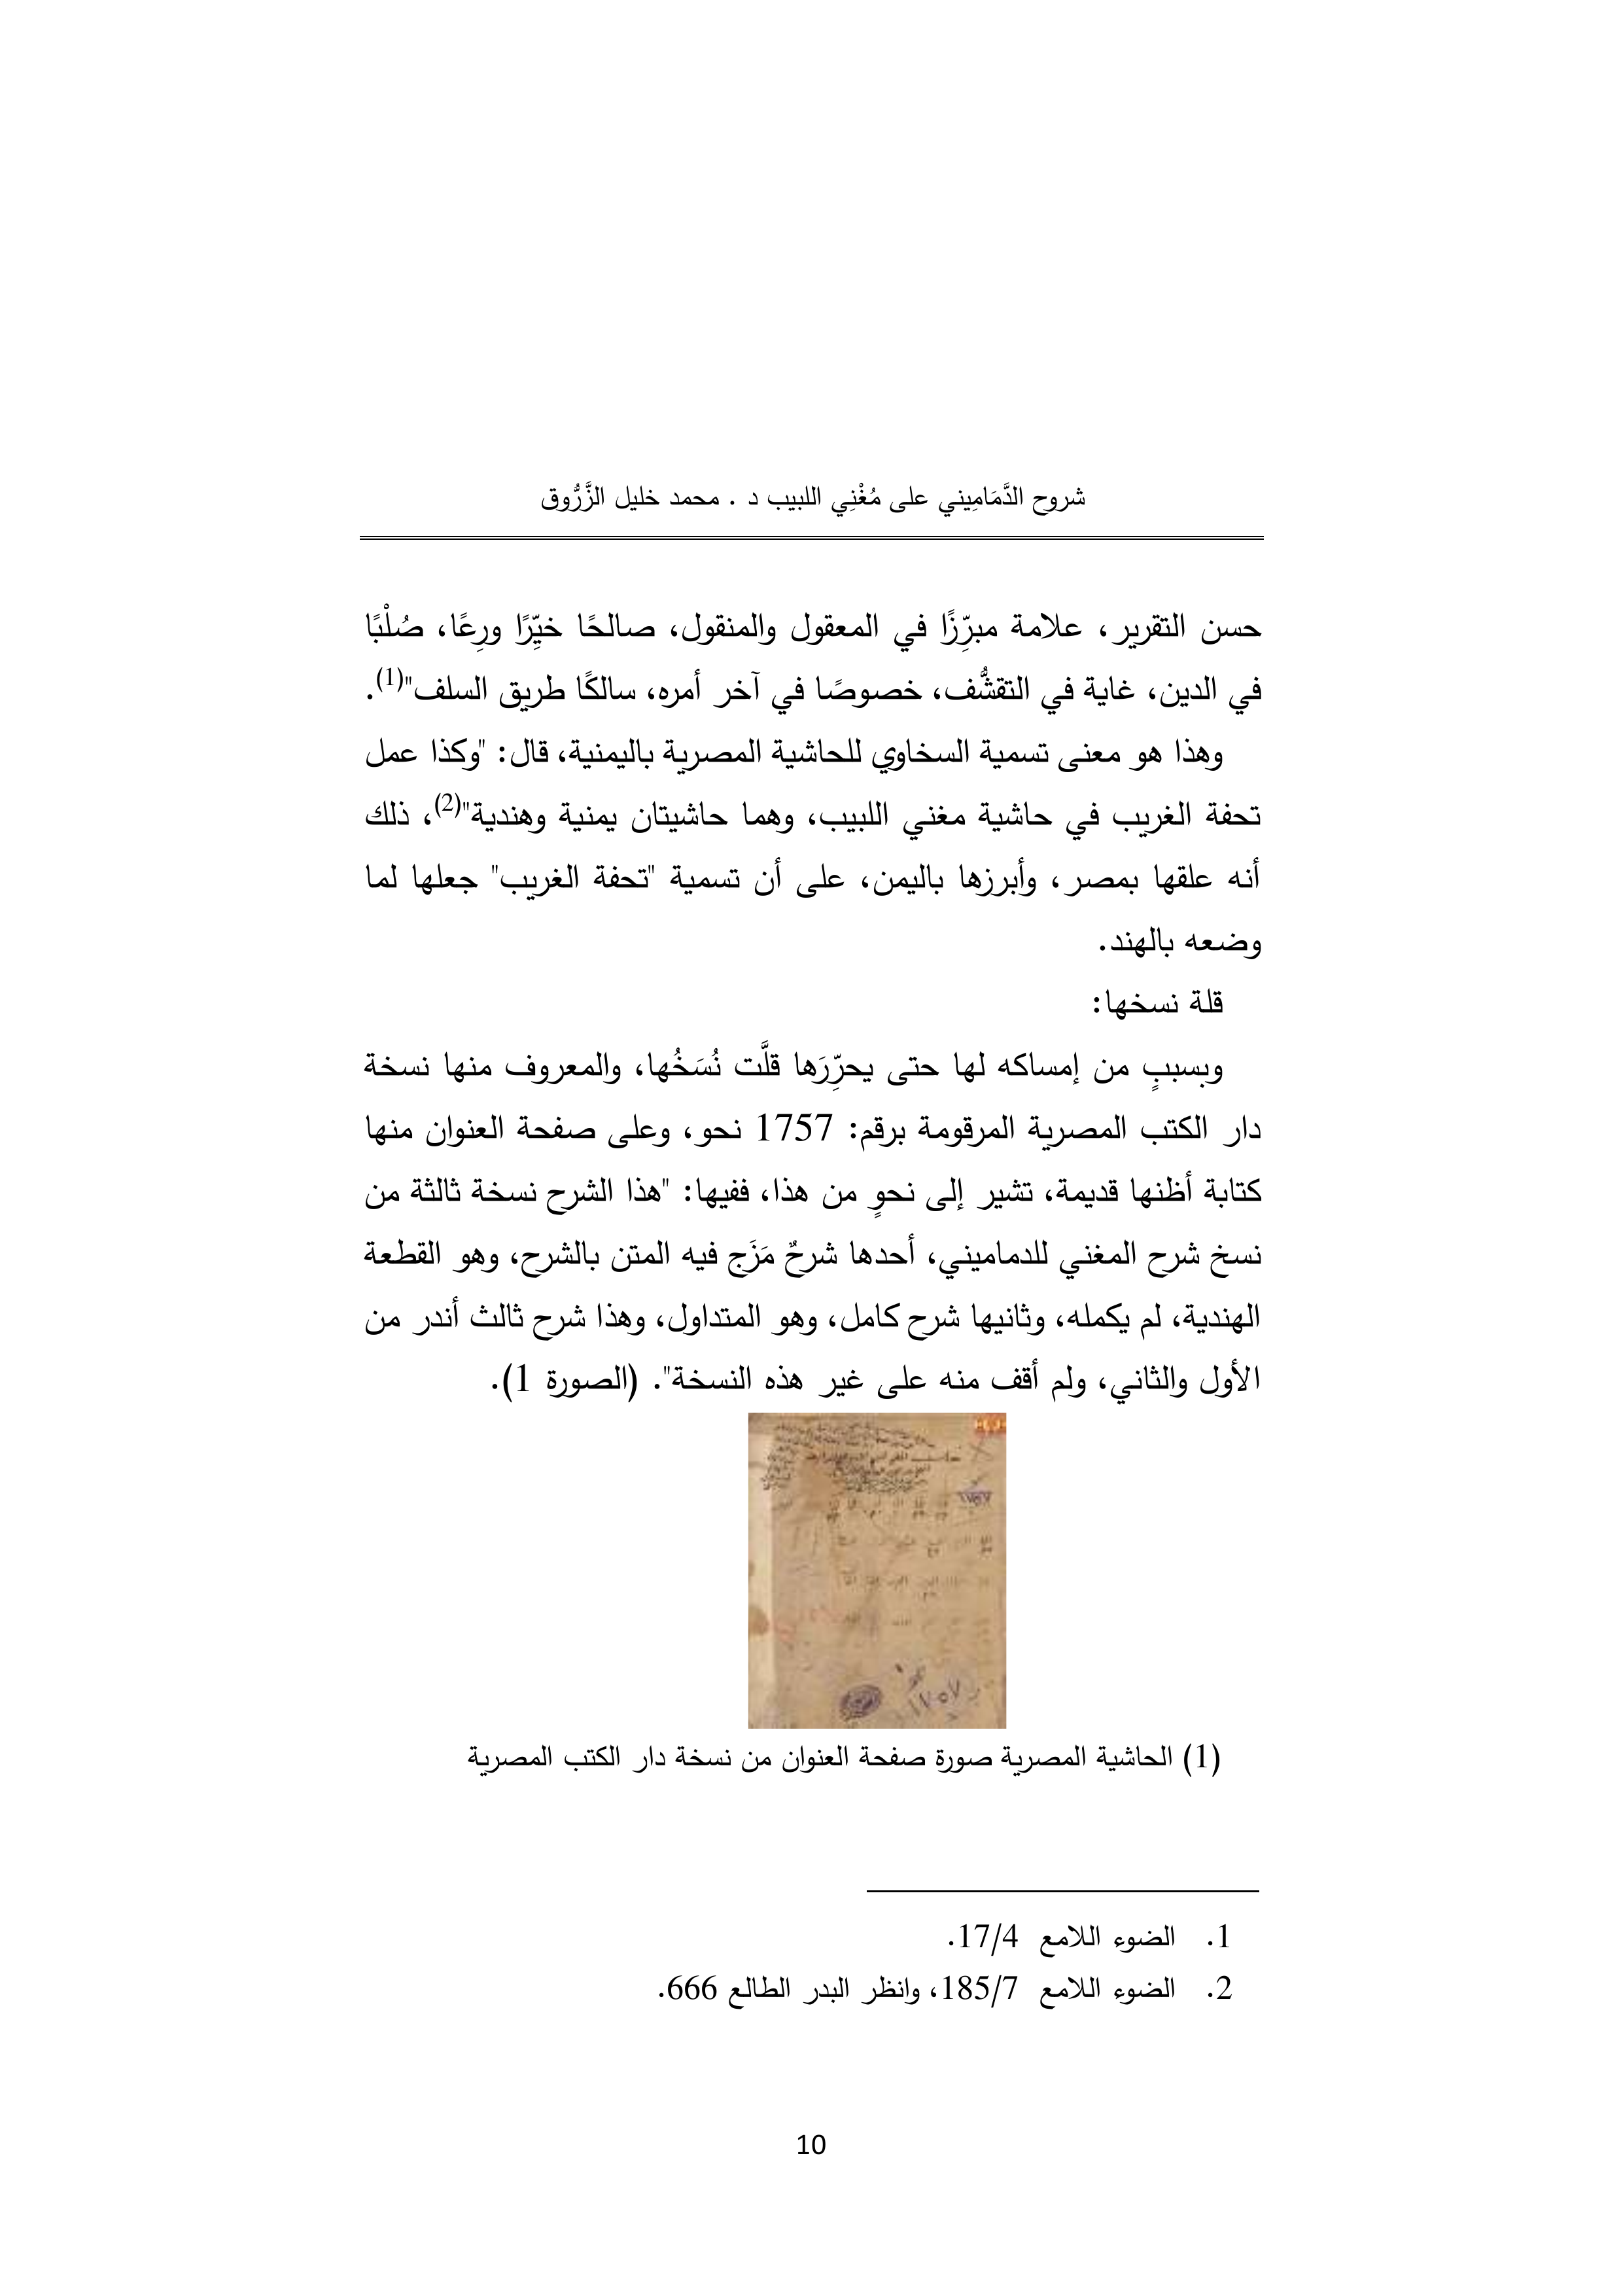 شروح الدَّمَامِيني على مُغْنِي اللبيب د . محمد خليل الزَّرُّوق
حسن التقرير، علامة مبرِّزًا في المعقول والمنقول، صالحًا خيِّرًا ورِعًا، صُلْبًا
في الدين، غاية في التقشُّف، خصوصًا في آخر أمره، سالكًا طريق السلف"(1).
وهذا هو معنى تسمية السخاوي للحاشية المصرية باليمنية، قال: "وكذا عمل
تحفة الغريب في حاشية مغني اللبيب، وهما حاشيتان يمنية وهندية"(2)، ذلك
أنه علقها بمصر، وأبرزها باليمن، على أن تسمية "تحفة الغريب" جعلها لما
وضعه بالهند.
قلة نسخها:
وبسببٍ من إمساكه لها حتى يحرِّرَها قلَّت نُسَخُها، والمعروف منها نسخة
دار الكتب المصرية المرقومة برقم: 1757 نحو، وعلى صفحة العنوان منها
كتابة أظنها قديمة، تشير إلى نحوٍ من هذا، ففيها: "هذا الشرح نسخة ثالثة من
نسخ شرح المغني للدماميني، أحدها شرحٌ مَزَج فيه المتن بالشرح، وهو القطعة
الهندية، لم يكمله، وثانيها شرح كامل، وهو المتداول، وهذا شرح ثالث أندر من
الأول والثاني، ولم أقف منه على غير هذه النسخة". (الصورة 1).
١٧٥٧
١٧٥٧
(1) الحاشية المصرية صورة صفحة العنوان من نسخة دار الكتب المصرية
1. الضوء اللامع 17/4.
2. الضوء اللامع 185/7، وانظر البدر الطالع 666.
10